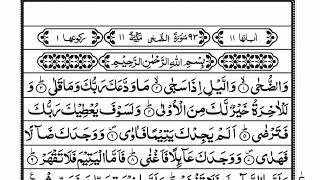 اٰیاتها ١١ ٩٣ سُوْرَةُ الضُّحٰى مَكِّيَّةٌ ١١ ركوعها ١
بِسْمِ اللّٰهِ الرَّحْمٰنِ الرَّحِيْمِ
وَالضُّحٰى ۙ وَالَّيْلِ اِذَا سَجٰى ۙ مَا وَدَّعَكَ رَبُّكَ وَمَا قَلٰى ؕ
وَلَلْاٰخِرَةُ خَيْرٌ لَّكَ مِنَ الْاُوْلٰى ؕ وَلَسَوْفَ يُعْطِيْكَ رَبُّكَ
فَتَرْضٰى ؕ اَلَمْ يَجِدْكَ يَتِيْمًا فَاٰوٰى ۪ وَوَجَدَكَ ضَآلًّا
فَهَدٰى ۪ وَوَجَدَكَ عَآئِلًا فَاَغْنٰى ؕ فَاَمَّا الْيَتِيْمَ فَلَا تَقْهَرْ ؕ